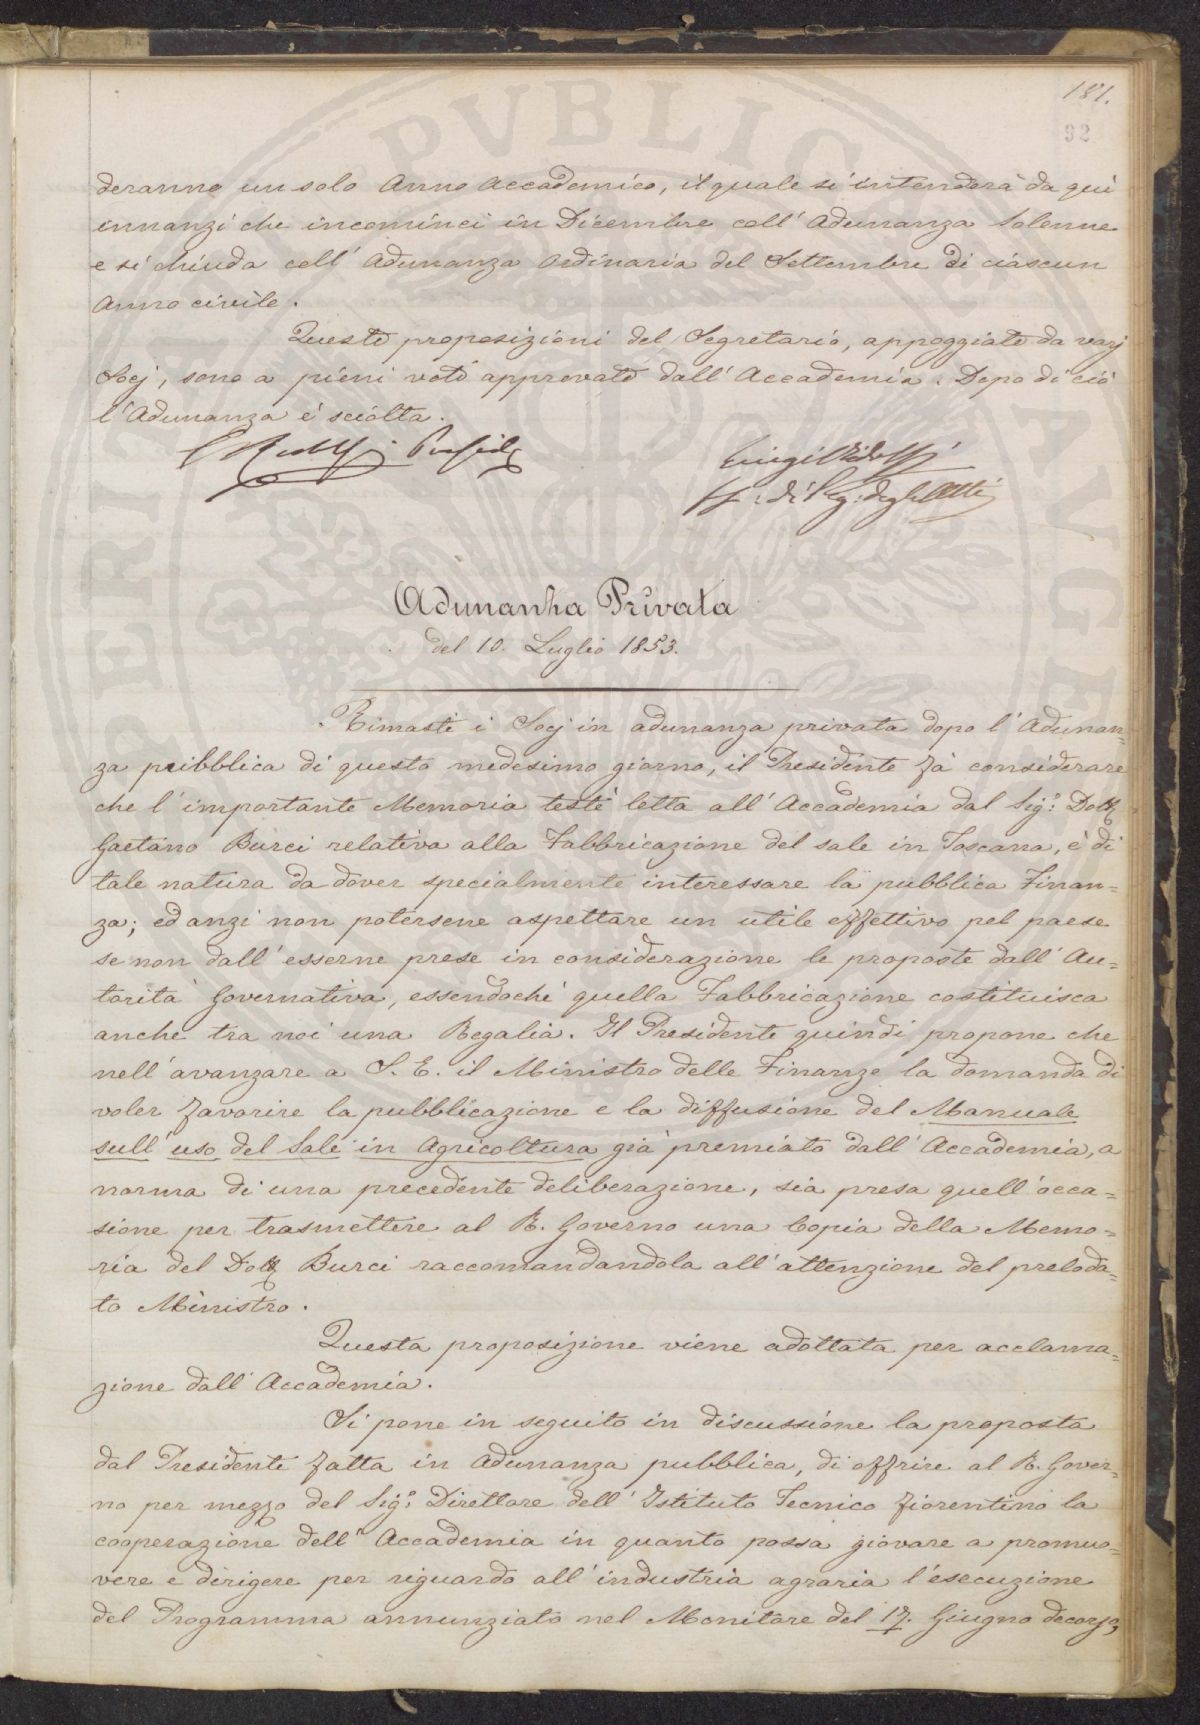 181.
92
deranno un solo Anno Accademico, il quale si intenderà da qui
innanzi che incominci in Dicembre coll' Adunanza Solenne
e si chiuda coll' Adunanza Ordinaria del Settembre di ciascun
Anno civile.
Queste proposizioni del Segretario, appoggiate da varj
Socj, sono a pieni voti approvate dall' Accademia. Dopo di ciò
l'Adunanza è sciolta.
Luigi Ridolfi
ff: di Seg: degli Atti
Adunanza Privata
del 10. Luglio 1853.
Rimasti i Socj in adunanza privata dopo l' Adunan=
za pubblica di questo medesimo giorno, il Presidente fà considerare
che l' importante Memoria testè letta all' Accademia dal Sig.r Dott.
Gaetano Burci relativa alla Fabbricazione del sale in Toscana, è di
tale natura da dover specialmente interessare la pubblica Finan=
za; ed anzi non potersene aspettare un utile effettivo pel paese
se non dall' esserne prese in considerazione le proposte dall' Au=
torità Governativa, essendochè quella Fabbricazione costituisca
anche tra noi una Regalia. Il Presidente quindi propone che
nell' avanzare a S. E. il Ministro delle Finanze la domanda di
voler favorire la pubblicazione e la diffusione del Manuale
sull' uso del Sale in Agricoltura già premiato dall' Accademia, a
norma di una precedente deliberazione, sia presa quell' occa=
sione per trasmettere al R. Governo una Copia della Memo=
ria del Dott. Burci raccomandandola all' attenzione del preloda=
to Ministro.
Questa proposizione viene adottata per acclama=
zione dall' Accademia.
Si pone in seguito in discussione la proposta
dal Presidente fatta in Adunanza pubblica, di offrire al R. Gover=
no per mezzo del Sig.r Direttore dell' Istituto Tecnico fiorentino la
cooperazione dell' Accademia in quanto possa giovare a promuo=
vere e dirigere per riguardo all' industria agraria l' esecuzione
del Programma annunziato nel Monitore del 17. Giugno decorso,